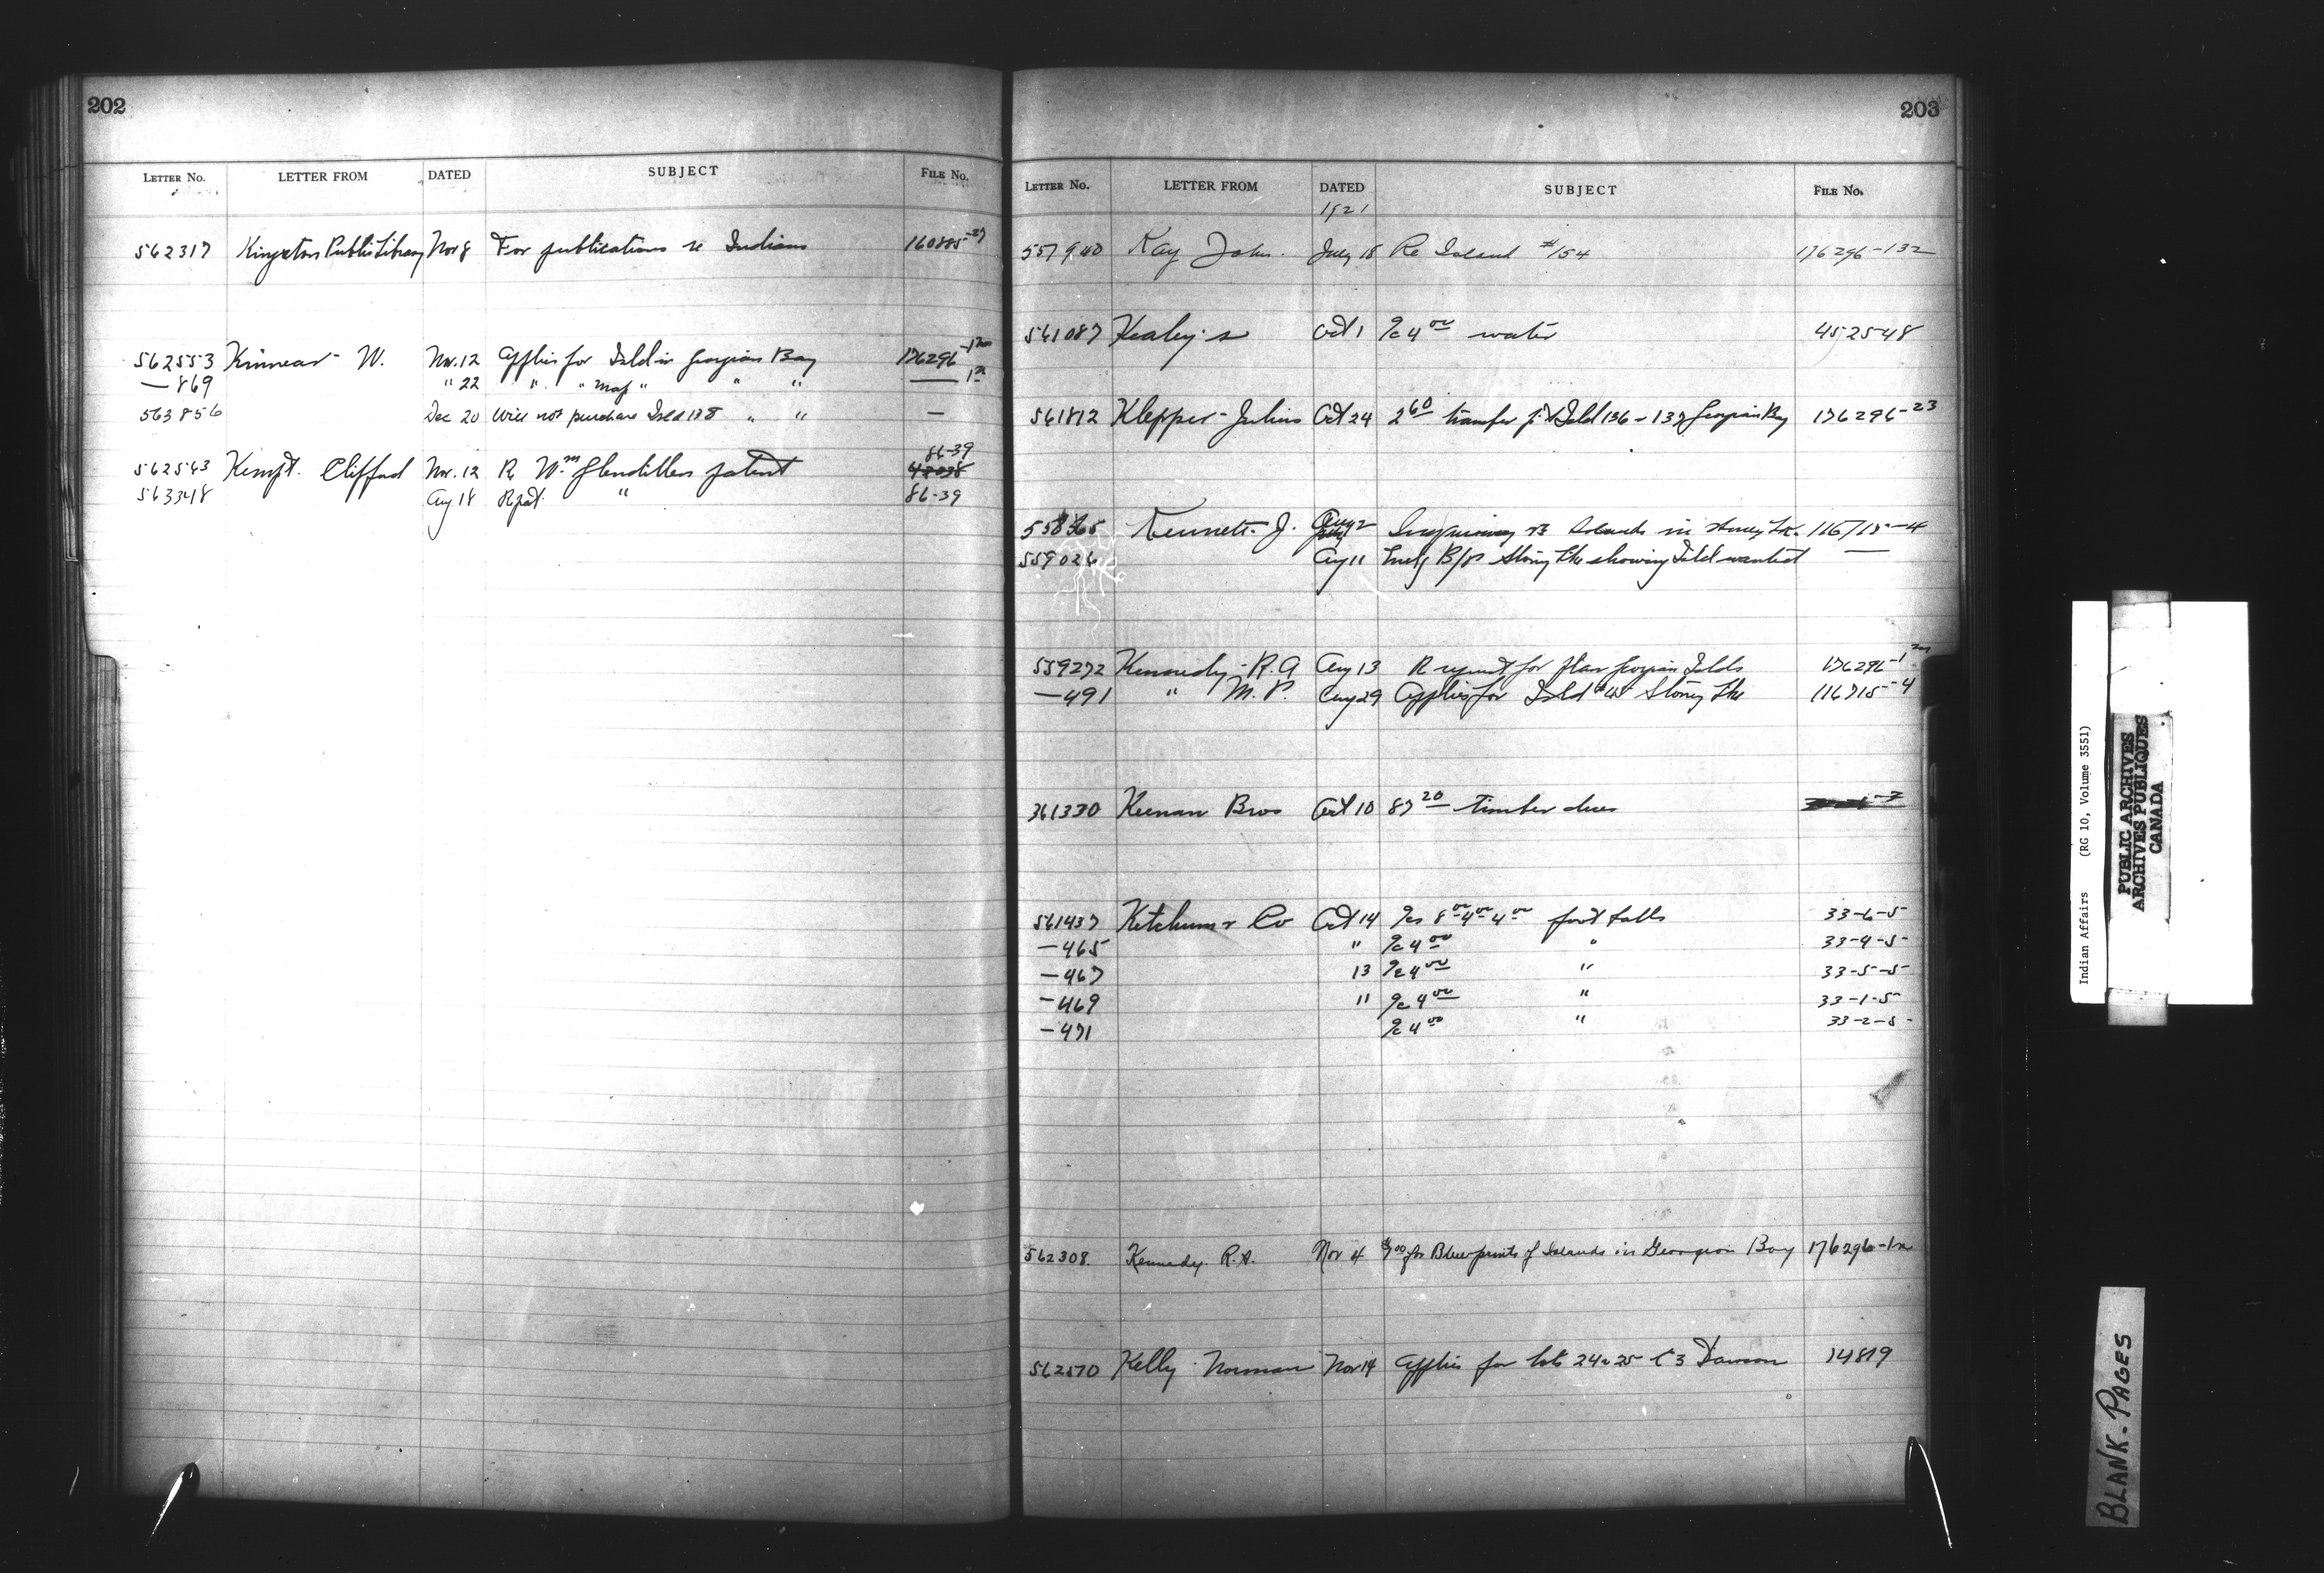 202
LETTER No. LETTER FROM DATED SUBJECT FILE No.
562317 Kingston Public Library Nov 8 For publications re Indians 160885-27
562553 Kinnear W. Nov. 12 Applies for Isld in Georgian Bay 176296-1
—869 " 22 " " Map " " "
563856 Dec 20 Will not purchase Isld 138 " " —
86-39
562543 Kempt. Clifford Nov. 12 Re Wm Glendillen patent 42038
563348 Aug 18 " 86-39
203
LETTER No. LETTER FROM DATED SUBJECT FILE No.
1921
557940 Kay John. July 18 Re Island #154 176296-132
561087 Kealey's Oct 1 4 00 water 452548
561812 Klepper Julius Oct 24 2 60 transfer Isld 136 - 137 Georgian Bay 176296-23
558365 Kennett J. Aug 2 Islands in Stoney Lk. 116715-4
559026 Aug 11 B/p Stony Lke showing Isld wanted —
559272 Kennedy R.A Aug 13 R request for plan Georgian Islds 176296-1
—491 " M.P. Aug 29 Applies for Isld Stony Lke 116715-4
561330 Keenan Bros Oct 10 87 20 timber dues
561437 Ketchum & Co Oct 14 8 00 4 00 4 00 foot balls 33-6-5
—465 " 4 00 " 33-4-5
—467 13 4 00 " 33-5-5
—469 11 4 00 " 33-1-5
—471 4 00 " 33-2-5
562308. Kennedy. R.A. Nov 4 for Blueprints of Islands in Georgian Bay 176296-1a
562570 Kelly Norman Nov 14 Applies for lots 24 & 25 C 3 Dawson 14819
Indian Affairs (RG 10, Volume 3551)
PUBLIC ARCHIVES
ARCHIVES PUBLIQUES
CANADA
BLANK-PAGES